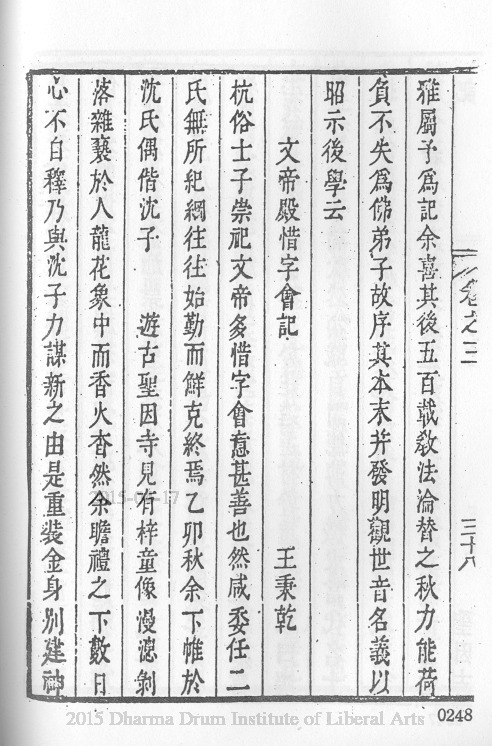 卷之三
三十八
雅屬予為記余喜其後五百載敎法淪替之秋力能荷
負不失為佛弟子故序其本末并發明觀世音名義以
昭示後學云
文帝殿惜字會記
王秉乾
杭俗士子崇祀文帝多惜字會意甚善也然咸委任二
氏無所紀綱往往始勤而鮮克終焉乙卯秋余下帷於
沈氏偶偕沈子 遊古聖因寺見有梓童像漫漶剝
落雜褻於人龍花象中而香火杳然余瞻禮之下數日
心不自釋乃與沈子力謀新之由是重裝金身別建神
2015 Dharma Drum Institute of Liberal Arts
0248